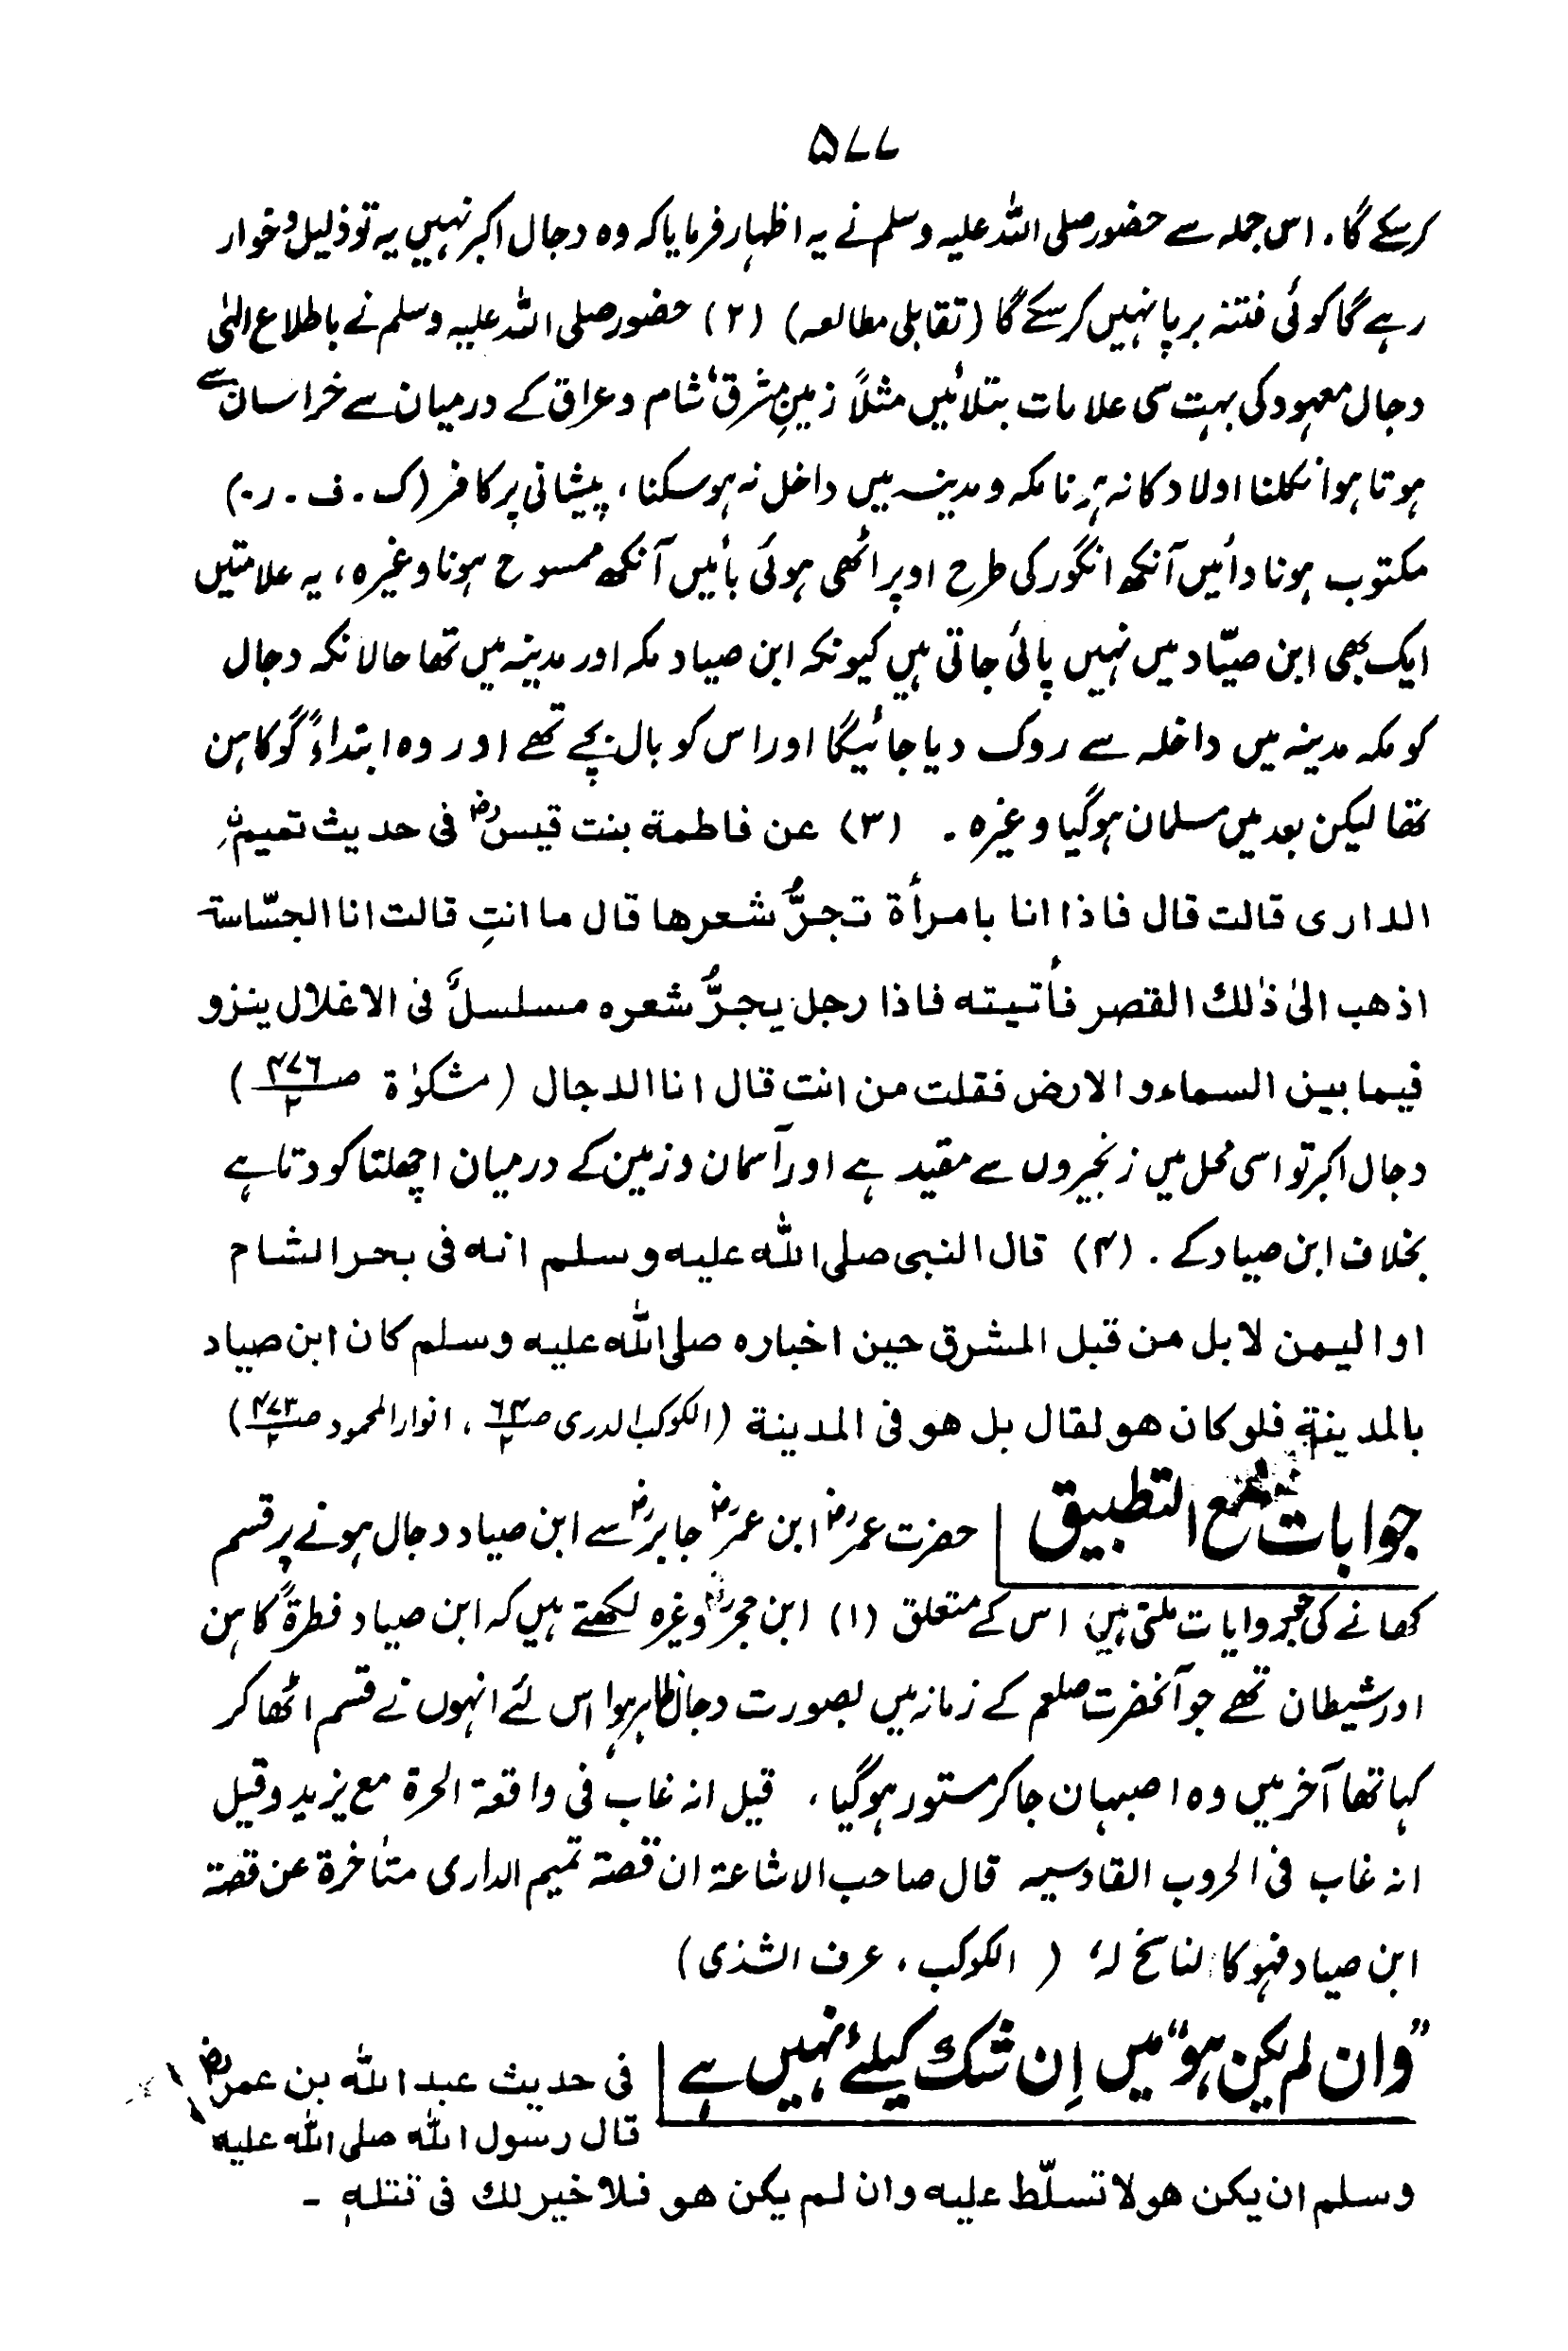 ۵۷۷
کرسکے گا۔ اس جملہ سے حضور صلی اللہ علیہ وسلم نے یہ اظہار فرمایا کہ وہ دجال اکبر نہیں یہ تو ذلیل و خوار
رہے گا کوئی فتنہ برپا نہیں کرسکے گا (تقابلی مطالعہ) (۲) حضور صلی اللہ علیہ وسلم نے باطلاع الہٰی
دجال معہود کی بہت سی علامات بتلائیں مثلاً زمینِ مشرق، شام وعراق کے درمیان سے خراسان سے
ہوتا ہوا نکلنا اولاد کا نہ ہونا مکہ و مدینہ میں داخل نہ ہوسکنا، پیشانی پر کافر (ک۔ف۔ر۔)
مکتوب ہونا دائیں آنکھ انگور کی طرح اوپر اٹھی ہوئی بائیں آنکھ ممسوح ہونا وغیرہ، یہ علامتیں
ایک بھی ابن صیّاد میں نہیں پائی جاتی ہیں کیونکہ ابن صیاد مکہ اور مدینہ میں تھا حالانکہ دجال
کو مکہ مدینہ میں داخلہ سے روک دیا جائیگا اور اس کو بال بچے تھے اور وہ ابتداءً گو کاہن
تھا لیکن بعد میں مسلمان ہوگیا وغیرہ۔ (۳) عن فاطمة بنت قیسؓ فی حدیث تمیمؓ
الداری قالت قال فاذا انا بامرأة تجرُّ شعرها قال ما انتِ قالت انا الجسّاسة
اذهب الیٰ ذٰلك القصر فأتیته فاذا رجل یجرُّ شعره مسلسلٌ فی الاغلال ینزو
فیما بین السماء و الارض فقلت من انت قال انا الدجال (مشکوٰة ص۴۷٦/۲)
دجال اکبر تو اسی محل میں زنجیروں سے مقید ہے اور آسمان وزمین کے درمیان اچھلتا کودتا ہے
بخلاف ابن صیاد کے۔ (۴) قال النبی صلی اللّٰه علیه وسلم انه فی بحر الشام
او الیمن لا بل من قبل المشرق حین اخباره صلی اللّٰه علیه وسلم کان ابن صیاد
بالمدینة فلو کان هو لقال بل هو فی المدینة (الکوکب الدری ص۶۴/۲، انوار المحمود ص۴۷۳/۲)
جوابات مع التطبیق | حضرت عمرؓ ابن عمرؓ جابرؓ سے ابن صیاد دجال ہونے پر قسم
کھانے کی جو روایات ملتی ہیں اس کے متعلق (۱) ابن حجرؒ وغیرہ لکھتے ہیں کہ ابن صیاد فطرةً کاہن
اور شیطان تھے جو آنحضرت صلعم کے زمانہ میں بصورت دجال ظاہر ہوا اس لئے انہوں نے قسم اٹھا کر
کہا تھا آخر میں وہ اصبہان جا کر مستور ہوگیا، قیل انہ غاب فی واقعۃ الحرۃ مع یزید وقیل
انہ غاب فی الحروب القادسیہ قال صاحب الاشاعۃ ان قصۃ تمیم الداری متأخرۃ عن قصۃ
ابن صیاد فہو کالناسخ لہٗ (الکوکب، عرف الشذی)
"وان لم یکن ہو" میں اِن شک کیلئے نہیں ہے | فی حدیث عبد اللّٰه بن عمرؓ
قال رسول اللّٰه صلی اللّٰه علیه
وسلم ان یکن هو لا تسلّط علیه وان لم یکن هو فلا خیر لك فی قتله۔